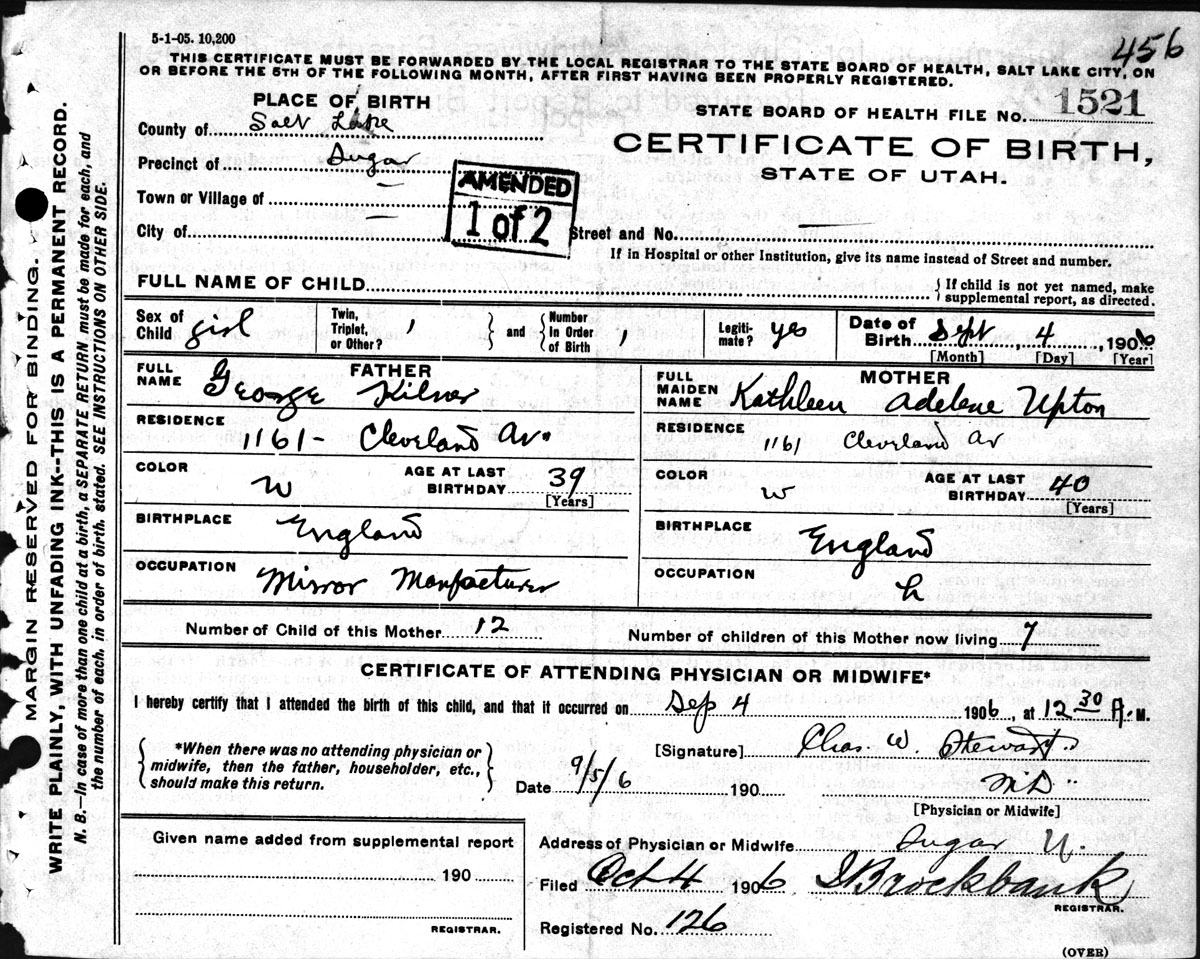 5-1-05. 10,200
456
THIS CERTIFICATE MUST BE FORWARDED BY THE LOCAL REGISTRAR TO THE STATE BOARD OF HEALTH, SALT LAKE CITY, ON
OR BEFORE THE 5TH OF THE FOLLOWING MONTH, AFTER FIRST HAVING BEEN PROPERLY REGISTERED.
PLACE OF BIRTH
STATE BOARD OF HEALTH FILE NO. 1521
County of Salt Lake
CERTIFICATE OF BIRTH,
Precinct of Sugar
STATE OF UTAH.
AMENDED
1 of 2
Town or Village of —
City of — Street and No. —
If in Hospital or other Institution, give its name instead of Street and number.
FULL NAME OF CHILD } If child is not yet named, make
supplemental report, as directed.
Sex of
Child girl
Twin,
Triplet,
or Other? } and { Number
in Order
of Birth
Legiti-
mate? yes
Date of
Birth Sept 4, 1906
[Month] [Day] [Year]
FATHER
FULL
NAME George Kilner
RESIDENCE
1161- Cleveland Av.
COLOR
W
AGE AT LAST
BIRTHDAY 39
[Years]
BIRTHPLACE
England
OCCUPATION
Mirror Manfacturer
MOTHER
FULL
MAIDEN
NAME Kathleen Adelene Upton
RESIDENCE
1161 Cleveland Av
COLOR
W
AGE AT LAST
BIRTHDAY 40
[Years]
BIRTHPLACE
England
OCCUPATION
h
Number of Child of this Mother 12 Number of children of this Mother now living 7
CERTIFICATE OF ATTENDING PHYSICIAN OR MIDWIFE*
I hereby certify that I attended the birth of this child, and that it occurred on Sep 4 1906, at 12 30 A. M.
{ *When there was no attending physician or
midwife, then the father, householder, etc.,
should make this return. }
[Signature] Chas. W. Stewart
Date 9/5/6 190 M.D.
[Physician or Midwife]
Given name added from supplemental report
190
REGISTRAR.
Address of Physician or Midwife Sugar U.
Filed Oct 4 1906 Brockbank
REGISTRAR.
Registered No. 126
(OVER)
MARGIN RESERVED FOR BINDING.
WRITE PLAINLY, WITH UNFADING INK--THIS IS A PERMANENT RECORD.
N. B.—In case of more than one child at a birth, a SEPARATE RETURN must be made for each, and
the number of each, in order of birth, stated. SEE INSTRUCTIONS ON OTHER SIDE.